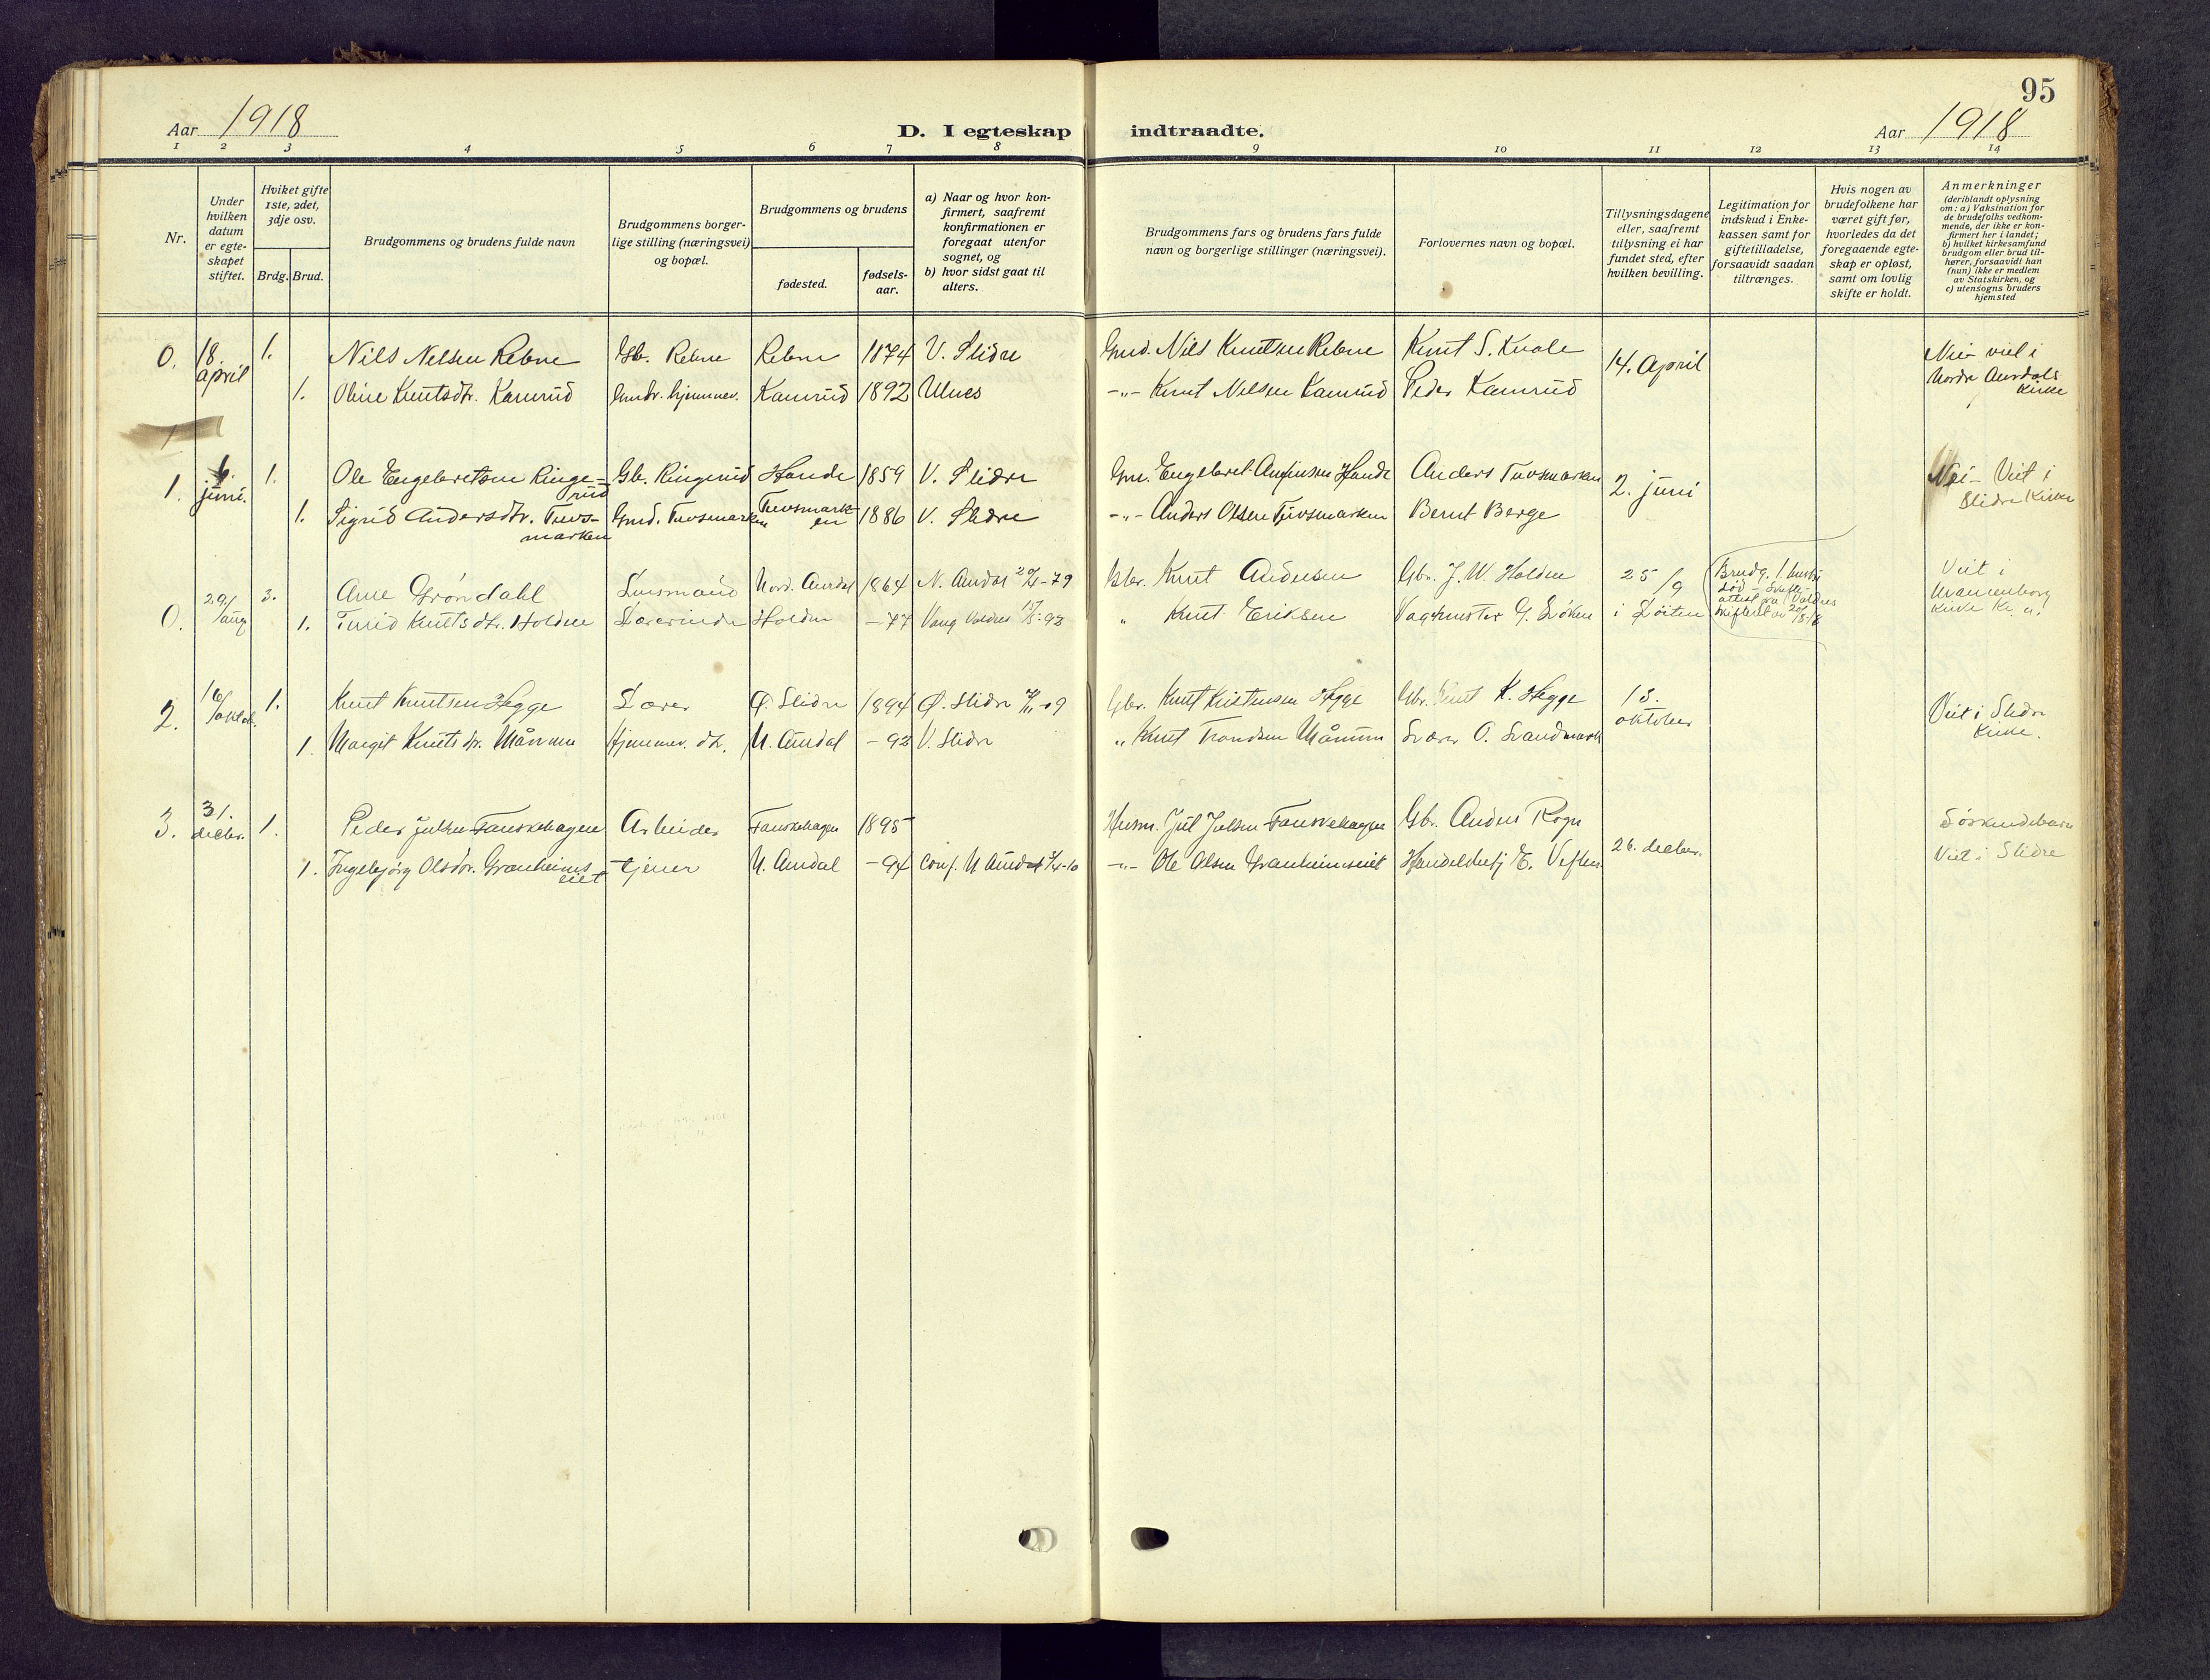 95
Aar 1918
D. I egteskap indtraadte.
Aar 1918
1 2 3 4 5 6 7 8 9 10 11 12 13 14
Nr.
Under hvilken datum er egteskapet stiftet.
Hviket gifte 1ste, 2det, 3dje osv.
Brdg. Brud.
Brudgommens og brudens fulde navn
Brudgommens borgerlige stilling (næringsvei) og bopæl.
Brudgommens og brudens
fødested.
fødselsaar.
a) Naar og hvor konfirmert, saafremt konfirmationen er foregaat utenfor sognet, og
b) hvor sidst gaat til alters.
Brudgommens fars og brudens fars fulde navn og borgerlige stillinger (næringsvei).
Forlovernes navn og bopæl.
Tillysningsdagene eller, saafremt tillysning ei har fundet sted, efter hvilken bevilling.
Legitimation for indskud i Enkekassen samt for giftetilladelse, forsaavidt saadan tiltrænges.
Hvis nogen av brudefolkene har været gift før, hvorledes da det foregaaende egteskap er opløst, samt om lovlig skifte er holdt.
Anmerkninger
(deriblandt oplysning om: a) Vaksination for de brudefolks vedkommende, der ikke er konfirmert her i landet; b) hvilket kirkesamfund brudgom eller brud tilhører, forsaavidt han (hun) ikke er medlem av Statskirken, og c) utensogns bruders hjemsted
0. 18. april 1. Nils Nelsen Rebne Gb. Rebne Rebne 1874 V. Slidre Gmd. Nils Knutsen Rebne Knut S. Kvale 14. April Nei- viet i Nordre Aurdals Kirke
1. Oline Knutsdtr. Kamrud Gmdr. hjemmev. Kamrud 1892 Ulnes -"- Knut Nelsen Kamrud Peder Kamrud
1. 6. juni. 1. Ole Engebretsen Ringerud Gb. Ringerud Hande 1859 V. Slidre Gm. Engebret Anfinsen Hande Anders Tuvsmarken 2. juni Nei- Viet i Slidre Kirke
1. Sigrid Andersdtr. Tuvsmarken Gmd. Tuvsmarken Tuvsmarken 1886 V. Slidre -"- Anders Olsen Tuvsmarken Bernt Berge
0. 29/ aug 3. Arne Grøndahl Lensmand Nord. Aurdal 1864 N. Aurdal -79 Gbr. Knut Andersen Gbr. J. W. Holden 25/9 Brudg. 1. hustru død - Skifte attest Valdres Viet i Uranienborg kirke
1. Turid Knutsdtr. Holden Lærerinde Holden -77 Vang Valdres -92 " Knut Eriksen Vagtmester G. Løken i Løiten
2. 16/oktob. 1. Knut Knutsen Hegge Lærer Ø. Slidre 1894 Ø. Slidre -09 Gbr. Knut Kristensen Hegge Gbr. Knut K. Hegge 13. oktober Viet i Slidre Kirke.
1. Margit Knutsdtr. Månum Hjemmev. dtr. N. Aurdal -92 V. Slidre " Knut Trondsen Månum Lærer O. Svandmark
3. 31. decbr. 1. Peder Julsen Fauskehagen Arbeider Fauskehagen 1895 Husm. Jul Julsen Fauskehagen Gbr. Andris Rogn 26. decbr. Søskendebarn
1. Ingebjørg Olsdtr. Granheimseiet tjener N. Aurdal -94 Conf. N Aurdal -10 -"- Ole Olsen Granheimseiet Handelsbetj E. Viet i Slidre